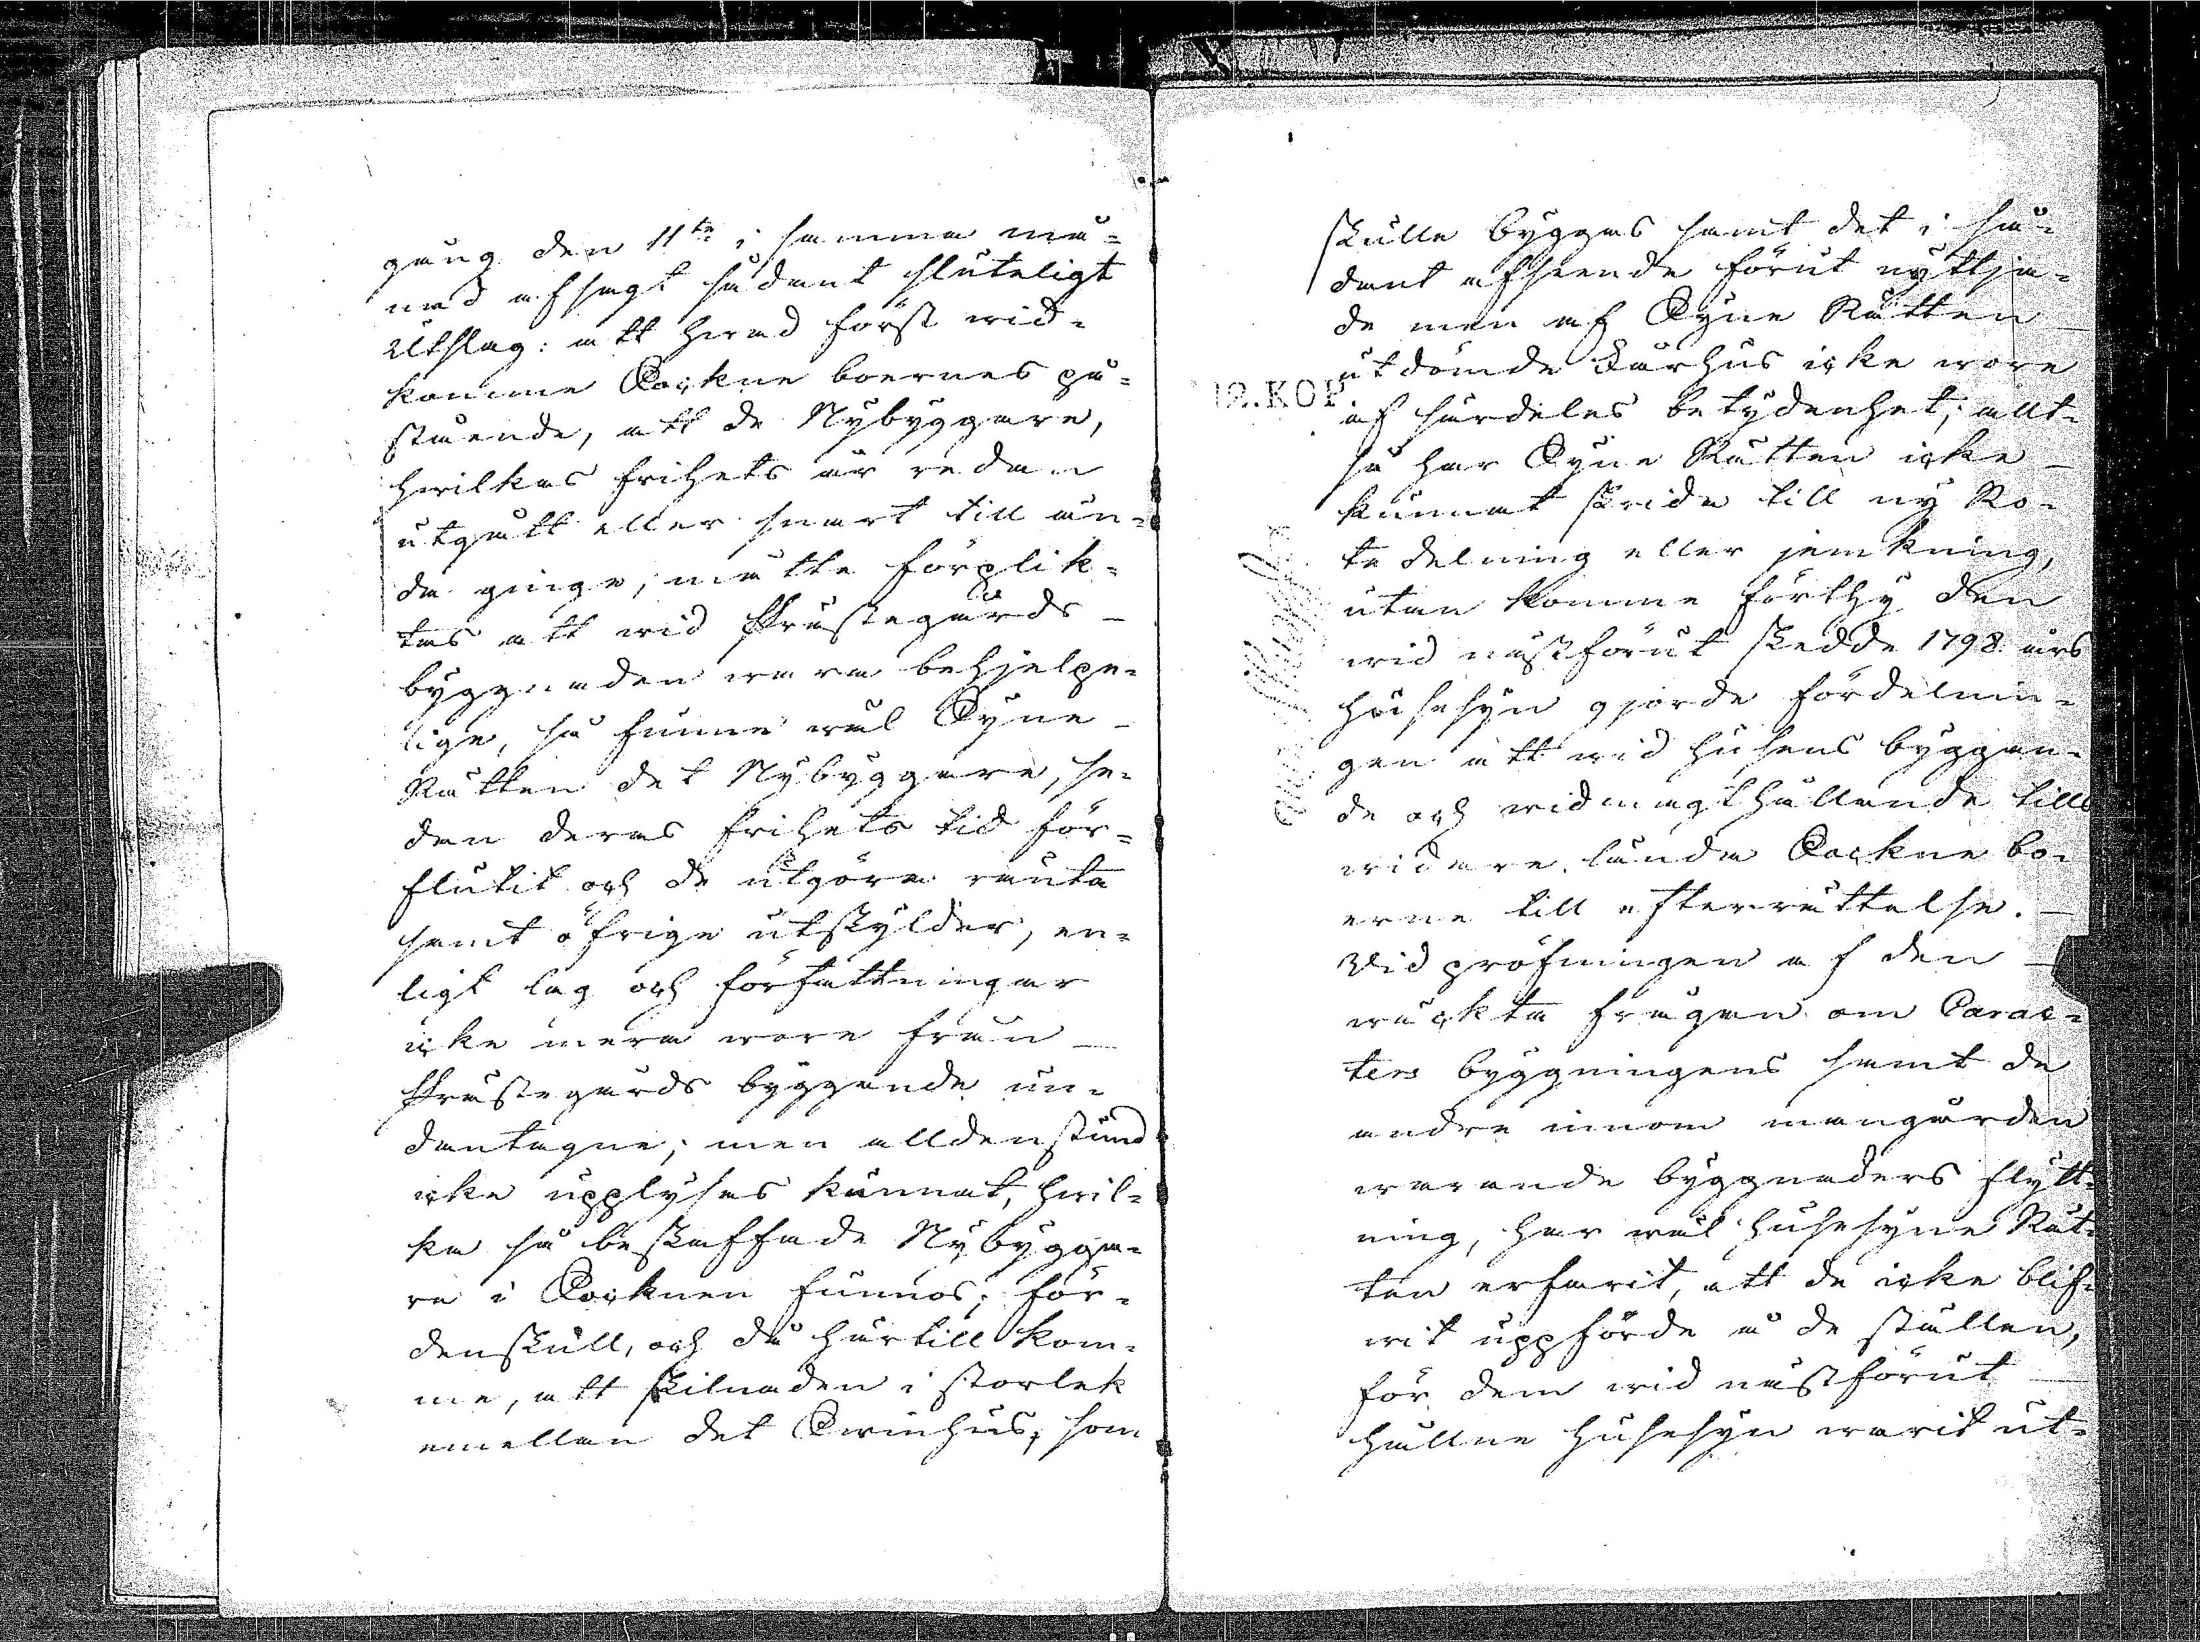 gång den 11te i samma må-
nad afsagt sådant sluteligt
Utslag: att hwad först wid-
komme Sockne boernes på-
stående, att de Nybyggare,
hwilkas frihets år redan
utgått eller snart till än-
da ginge, måtte förplik-
tas att wid Prästegårds
byggnaden wara behjelpe-
lige, så funne wäl Syne
Rätten det Nybyggare, se-
dan deras frihets tid för-
flutit och de utgöra ränta
samt öfrige utskylder, en-
ligt lag och författningar
icke mera wore från
Prästegårds byggande un-
dantagne; men alldenstund
icke upplysas kunnat, hwil-
ka så beskaffade Nybygga-
re i Socknen funnos; för-
denskull, och då härtill kom-
me, att skilnaden i storlek
emellan det Swinhus, som
skulle byggas samt det i så-
dant afseende förut nyttja-
de men af Syne Rätten
utdömde Fårhus icke wore
19. KOP.
af särdeles betydenhet; allt-
så har Syne Rätten icke
kunnat skrida till ny Ro-
te delning eller jemkning,
utan komme förthy den
wid nästförut skedde 1798 års
husesyn gjorde fördelnin-
gen att wid husens byggan-
de och widmagthållande tills
widare lända Sockne bo-
erne till efterrättelse.
Vid pröfningen af den
wäckta frågan om Carac-
ters byggningens samt de
andre innom mangården
warande byggnaders flytt-
ning, har wäl husesyne Rät-
ten erfarit, att de icke blif-
wit uppförde å de ställen,
för dem wid nästförut
hållne husesyn warit ut-